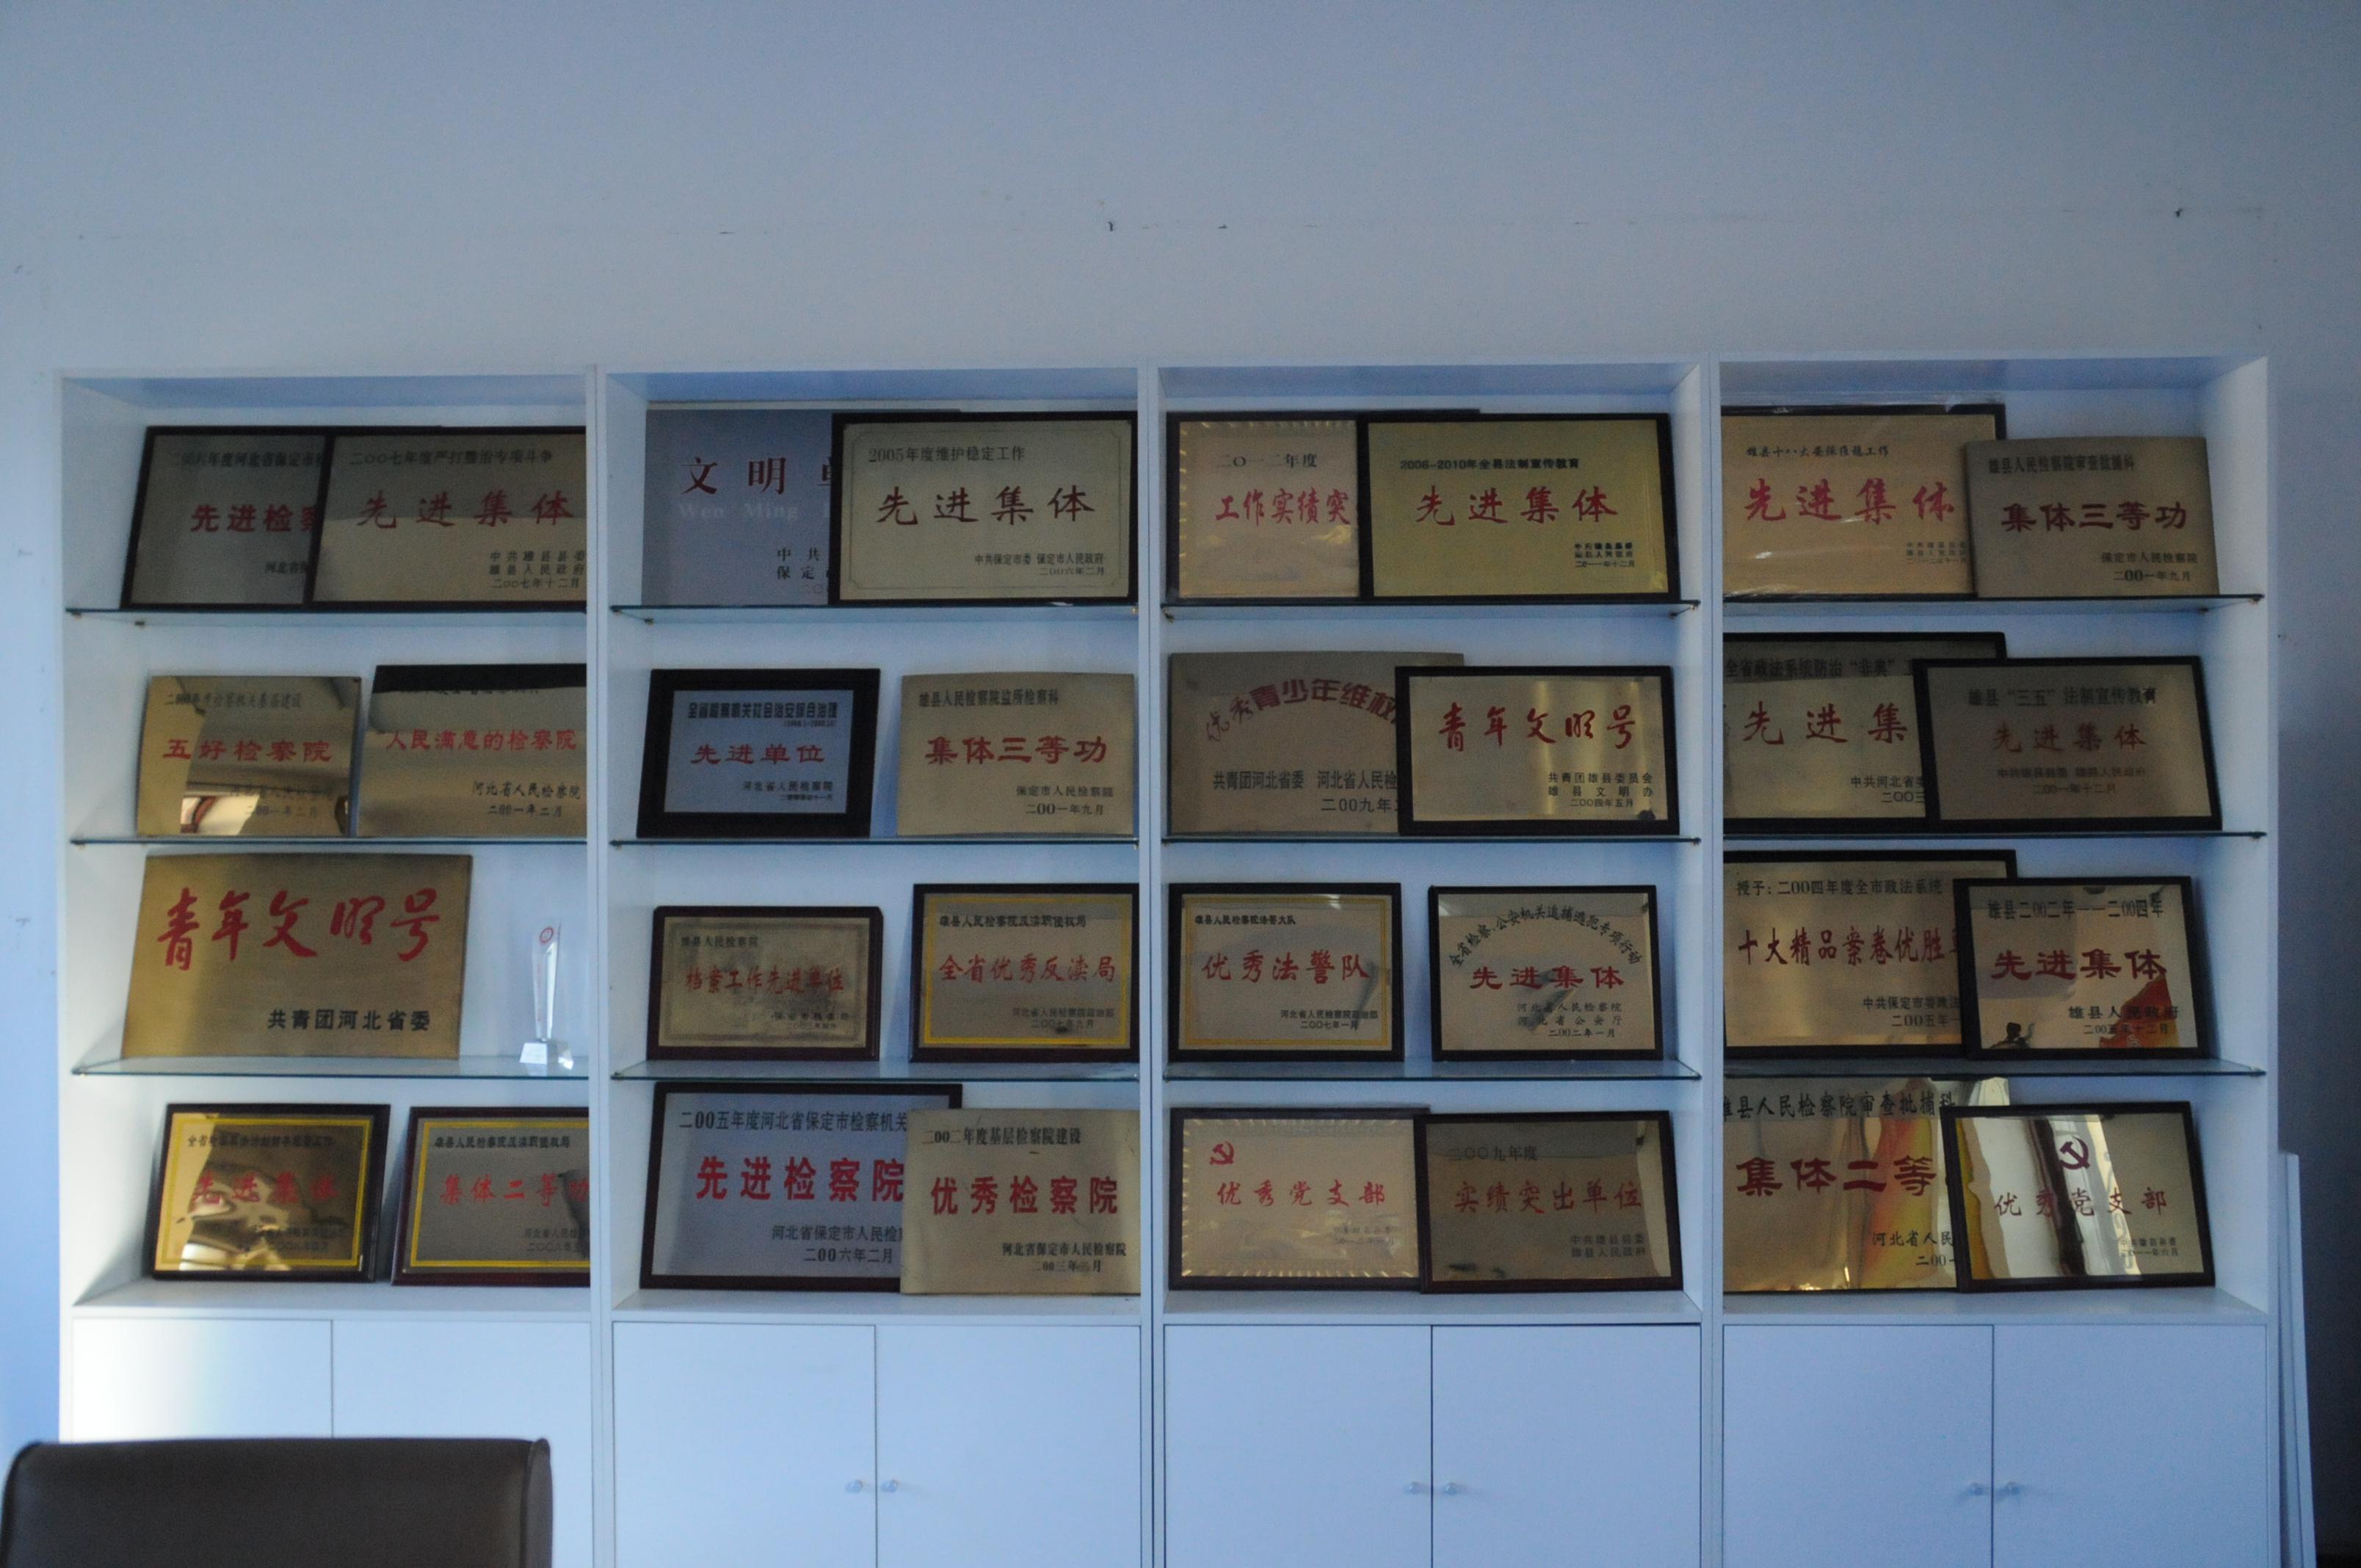 先进检察
二〇〇七年度严打整治专项斗争
先进集体
中共雄县县委
雄县人民政府
二〇〇七年十二月
文明
Wen Ming
中共
保定
2005年度维护稳定工作
先进集体
中共保定市委 保定市人民政府
二〇〇六年二月
二〇一二年度
工作实绩突
2006-2010年全县法制宣传教育
先进集体
二〇一一年十二月
雄县十八大安保维稳工作
先进集体
雄县人民检察院审查批捕科
集体三等功
保定市人民检察院
二00一年九月
五好检察院
二00一年二月
人民满意的检察院
河北省人民检察院
二00一年二月
先进单位
河北省人民检察院
雄县人民检察院监所检察科
集体三等功
保定市人民检察院
二00一年九月
优秀青少年维权
共青团河北省委 河北省人民检
二00九年
青年文明号
共青团雄县委员会
雄县文明办
二〇〇四年五月
全省政法系统防治“非典”
先进集
中共河北省委
二〇〇三
雄县“三五”法制宣传教育
先进集体
中共雄县县委 雄县人民政府
二〇〇一年十二月
青年文明号
共青团河北省委
雄县人民检察院
档案工作先进单位
雄县人民检察院反渎职侵权局
全省优秀反渎局
河北省人民检察院政治部
二〇〇七年九月
雄县人民检察院法警大队
优秀法警队
河北省人民检察院政治部
二〇〇七年一月
全省检察、公安机关追捕逃犯专项行动
先进集体
河北省人民检察院
河北省公安厅
二00二年一月
授予:二〇〇四年度全市政法系统
十大精品案卷优胜
中共保定市委政法
二〇〇五年一
雄县二00二年——二00四年
先进集体
雄县人民政府
二00五年十二月
先进集体
雄县人民检察院反渎职侵权局
集体二等功
河北省人民检
二00五年度河北省保定市检察机关
先进检察院
河北省保定市人民检
二00六年二月
二00二年度基层检察院建设
优秀检察院
河北省保定市人民检察院
优秀党支部
二〇〇九年度
实绩突出单位
中共雄县县委
雄县人民政府
雄县人民检察院审查批捕科
集体二等
河北省人民
二00一
优秀党支部